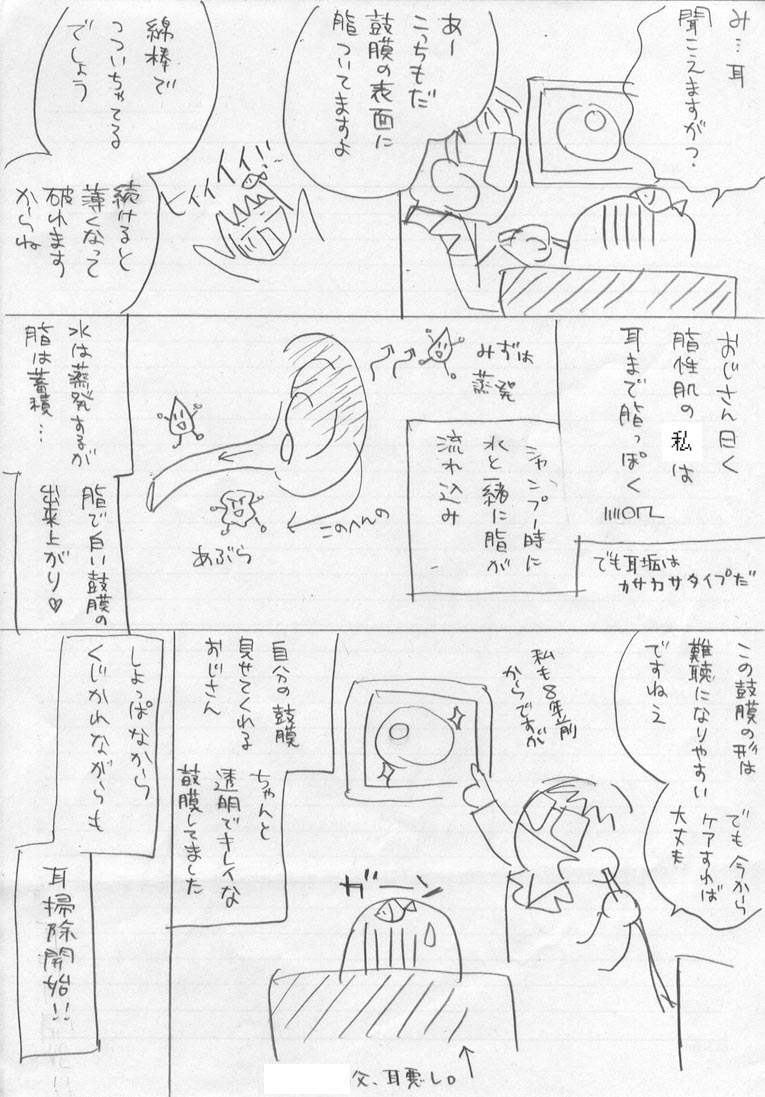 み…耳
聞こえますが？
あー
こっちもだ
鼓膜の表面に
脂ついてますよ
綿棒で
つついちゃてる
でしょう
続けると
薄くなって
破れます
からね
ヒィイィイ!!
おじさん曰く
脂性肌の私は
耳まで脂っぽく
でも耳垢は
カサカサタイプだ
シャンプー時に
水と一緒に脂が
流れ込み
みずは
蒸発
このへんの
あぶら
水は蒸発するが
脂は蓄積…
脂で白い鼓膜の
出来上がり♡
この鼓膜の形は
難聴になりやすい
ですねえ
でも今から
ケアすれば
大丈夫
私も8年前
からですが
自分の鼓膜
見せてくれる
おじさん
ちゃんと
透明でキレイな
鼓膜してました
ガーン
父、耳悪し。
しょっぱなから
くじかれながらも
耳掃除開始!!